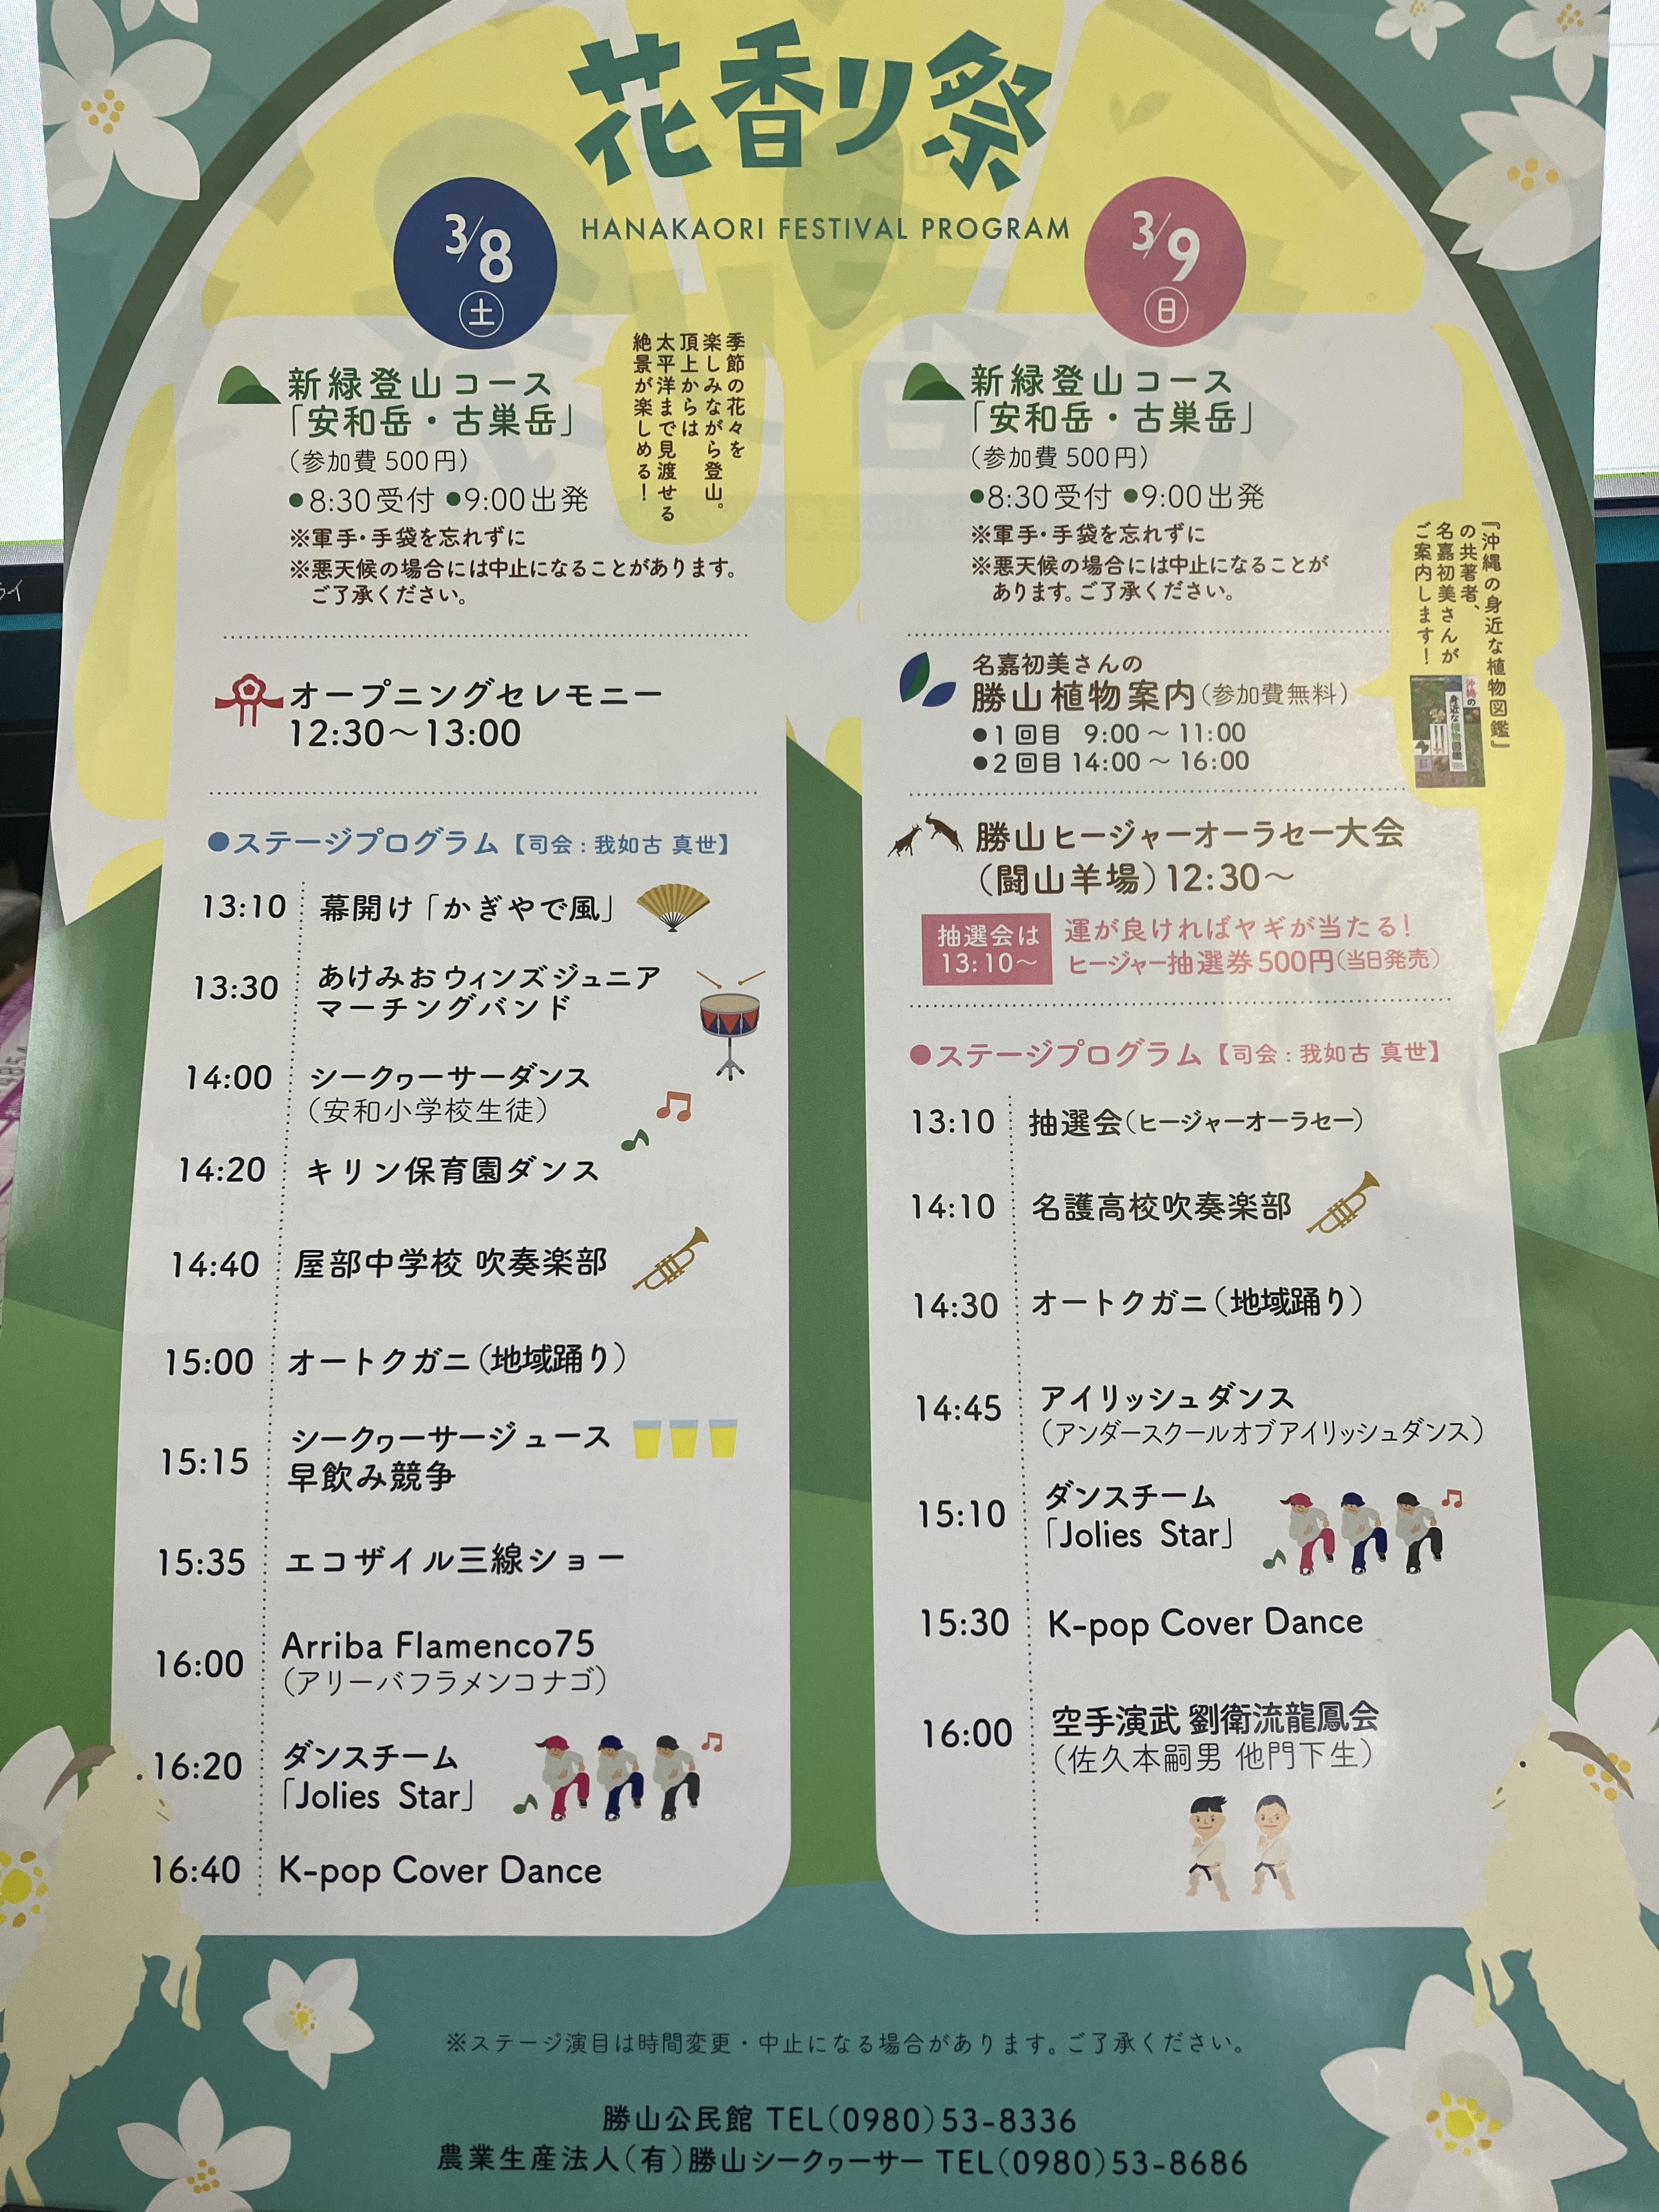 花香り祭
HANAKAORI FESTIVAL PROGRAM
3/8
土
新緑登山コース
「安和岳・古巣岳」
(参加費500円)
●8:30受付 ●9:00出発
※軍手・手袋を忘れずに
※悪天候の場合には中止になることがあります。
ご了承ください。
季節の花々を
楽しみながら登山。
頂上からは
太平洋まで見渡せる
絶景が楽しめる！
オープニングセレモニー
12:30～13:00
●ステージプログラム【司会：我如古 真世】
13:10 幕開け「かぎやで風」
13:30 あけみおウィンズジュニア
マーチングバンド
14:00 シークヮーサーダンス
(安和小学校生徒)
14:20 キリン保育園ダンス
14:40 屋部中学校 吹奏楽部
15:00 オートクガニ(地域踊り)
15:15 シークヮーサージュース
早飲み競争
15:35 エコザイル三線ショー
16:00 Arriba Flamenco75
(アリーバフラメンコナゴ)
16:20 ダンスチーム
「Jolies Star」
16:40 K-pop Cover Dance
3/9
日
新緑登山コース
「安和岳・古巣岳」
(参加費500円)
●8:30受付 ●9:00出発
※軍手・手袋を忘れずに
※悪天候の場合には中止になることが
あります。ご了承ください。
『沖縄の身近な植物図鑑』
の共著者、
名嘉初美さんが
ご案内します！
沖縄の
身近な植物図鑑
名嘉初美さんの
勝山植物案内(参加費無料)
●1回目 9:00～11:00
●2回目 14:00～16:00
勝山ヒージャーオーラセー大会
(闘山羊場)12:30～
抽選会は
13:10～
運が良ければヤギが当たる！
ヒージャー抽選券500円(当日発売)
●ステージプログラム【司会：我如古 真世】
13:10 抽選会(ヒージャーオーラセー)
14:10 名護高校吹奏楽部
14:30 オートクガニ(地域踊り)
14:45 アイリッシュダンス
(アンダースクールオブアイリッシュダンス)
15:10 ダンスチーム
「Jolies Star」
15:30 K-pop Cover Dance
16:00 空手演武 劉衛流龍鳳会
(佐久本嗣男 他門下生)
※ステージ演目は時間変更・中止になる場合があります。ご了承ください。
勝山公民館 TEL(0980)53-8336
農業生産法人(有)勝山シークヮーサー TEL(0980)53-8686